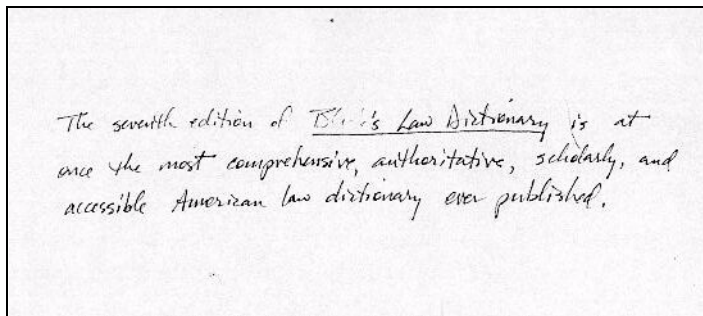 The seventh edition of Black's Law Dictionary is at
once the most comprehensive, authoritative, scholarly, and
accessible American law dictionary ever published.